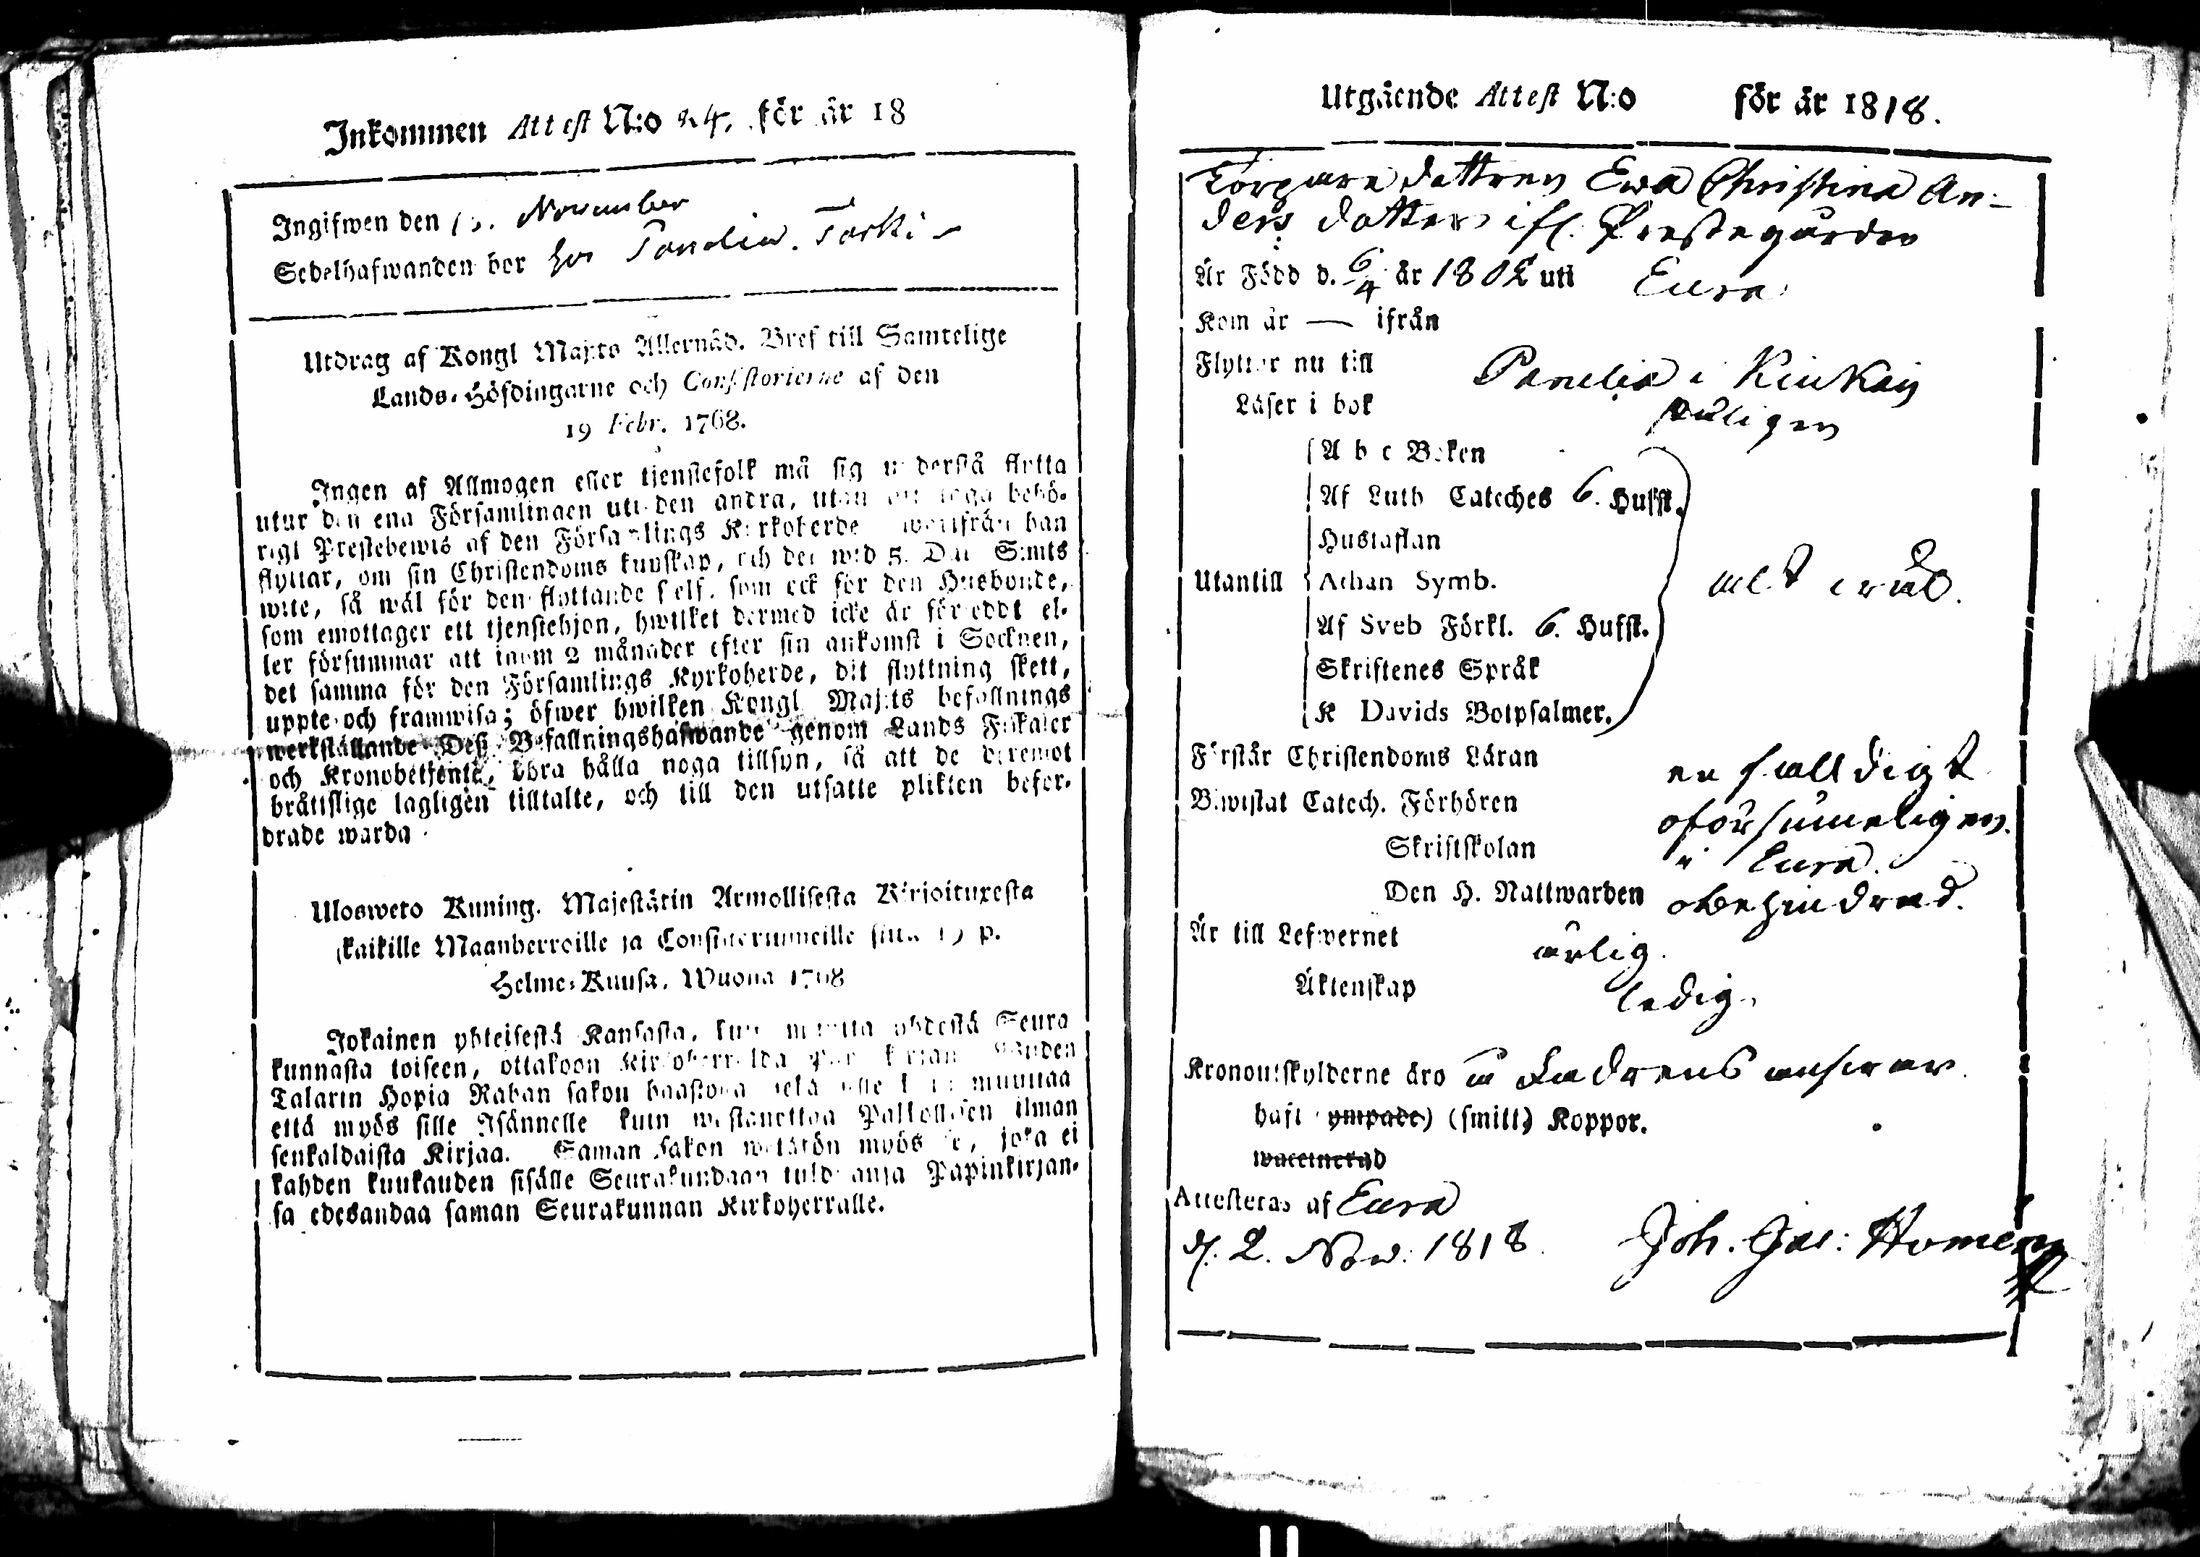 Inkommen Attest N:o 24. för år 18
Ingifwen den 15. November
Sedelhafwanden bor hos Panelia
Utdrag af Kongl Maj:ts Allernåd. Bref till Samtelige
Lands-Höfdingarne och Consistorierne af den
19 Febr. 1768.
Ingen af Allmogen eller tjenstefolk må sig understå flytta
utur den ena Församlingen uti den andra, utan att taga behö-
rigt Prestebewis af den Församlings Kyrkoherde hwarifrån han
flyttar, om sin Christendoms kunskap, och det wid 5. Dal S:mts
wite, så wäl för den flyttande self. som ock för den Husbonde,
som emottager ett tjenstehjon, hwilket dermed icke är förseddt el-
ler försummar att inom 2 månader efter sin ankomst i Socknen,
det samma för den Församlings Kyrkoherde, dit flyttning skett,
uppte och framwisa; öfwer hwilken Kongl Maj:ts befallnings
werkställande Deß Befallningshafwande genom Lands Fiskaler
och Kronobetjente, böra hålla noga tillsyn, så att de deremot
bråttslige lagligen tilltalte, och till den utsatte plikten befor-
drade warda
Ulosweto Kuning. Majestätin Armollisesta Kirjoituxesta
kaikille Maanherroille ja Consistoriumeille siitä 19 p.
Helme-Kuusa. Wuona 1768
Jokainen yhteisestä Kansasta, kuin muutta yhdestä Seura
kunnasta toiseen, ottakoon Kirkoherralda Papin kirjan
Talarin Hopia Rahan sakon haastolla sekä itse muuttaa
että myös sille Isännelle kuin wastanottaa Palkollisen ilman
senkaldaista Kirjaa. Saman sakon wetätön myös se, joka ei
kahden kuukauden sisälle Seurakundaan tuldoansa Papinkirjan-
sa edesandaa saman Seurakunnan Kirkoherralle.
Utgående Attest N:o för år 1818.
Torpare dottren Ewa Christina An-
ders dotter ifr. Prestegården
Är Född d. 6/4 år 1802 uti Eura
Kom år — ifrån
Flyttar nu till Panelia i Kiukais
Läser i bok
A b c Boken
Af Luth Cateches 6. Hufst.
Hustaflan
Utantill Athan Symb.
Af Sveb Förkl. 6. Hufst.
Skriftenes Språk
K Davids Botpsalmer.
Förstår Christendoms Läran enfalldigt
Biwistat Catech. Förhören oförsumeligen.
Skriftskolan i Eura.
Den H. Nattwarden obehindrad.
Är till Lefwernet ärlig.
Äktenskap ledig.
Kronoutskylderne äro å Fadrens answar.
haft (ympade) (smitt) Koppor.
waccinerad
Attesteras af Eura
d. 2. Nov: 1818. Joh. Jac: Homén